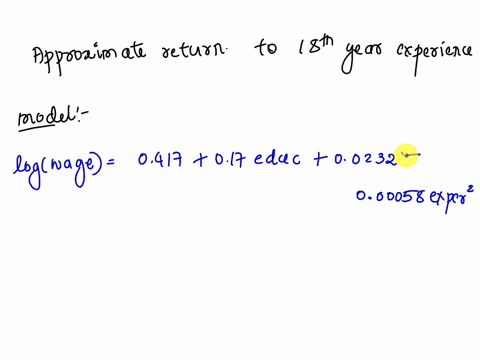 Approximate return to 18th year experience
model:-
log(wage) = 0.417 + 0.17 educ + 0.0232
0.00058 exper²